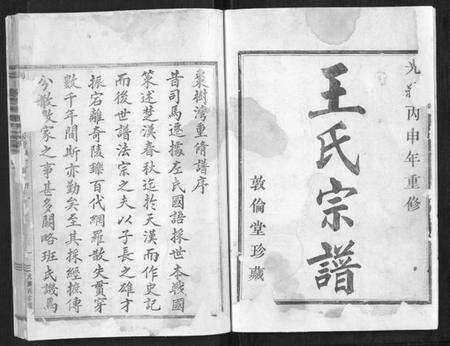 光緒丙申年重修
王氏宗譜
敦倫堂珍藏
棗樹灣重脩譜序
昔司馬遷據左氏國語採世本戰國
策述楚漢春秋迄於天漢而作史記
而後世譜法宗之夫以子長之雄才
振宕離奇陵轢百代網羅散失貫穿
數千年間斯亦勤矣至其採經摭傳
分散數家之事甚多闊略班氏譏焉